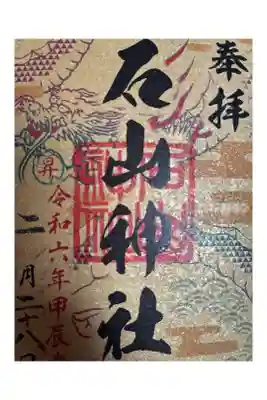 奉拝
石山神社
昇
令和六年甲辰
二月二十八日